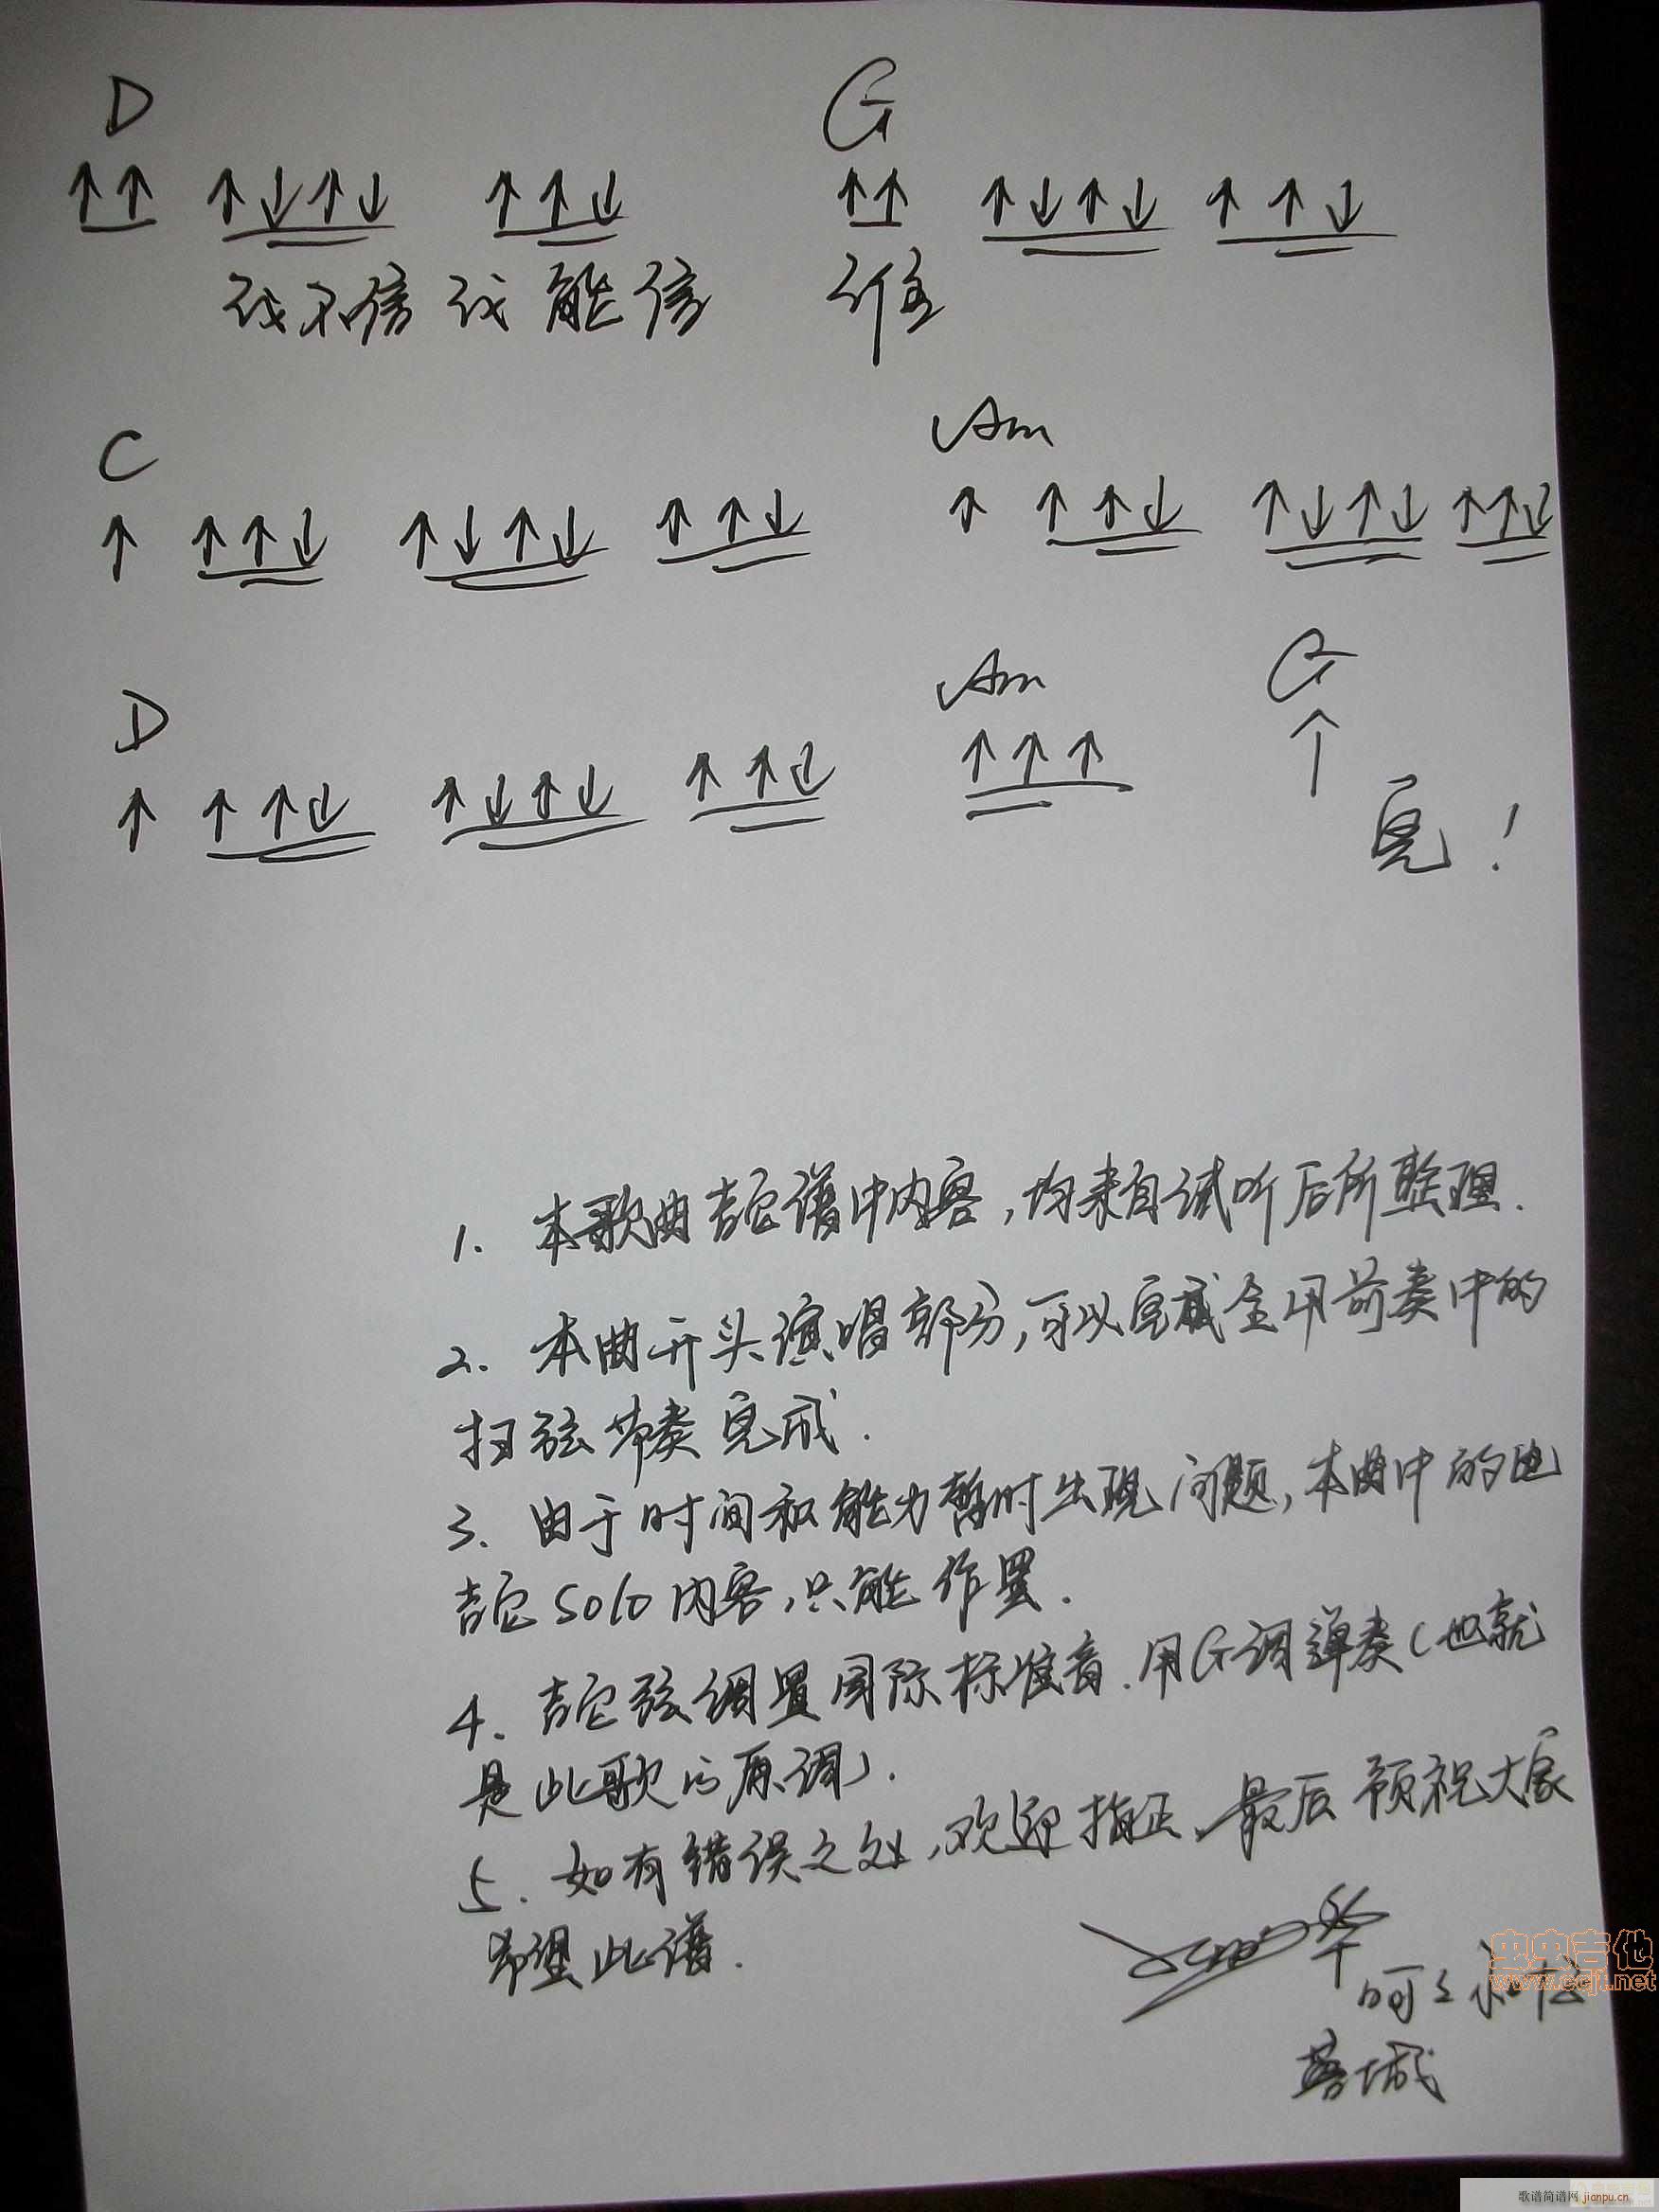 D G
↑↑ ↑↓↑↓ ↑↑↓ ↑↑ ↑↓↑↓ ↑↑↓
我不信我能信 谁
C Am
↑ ↑↑↓ ↑↓↑↓ ↑↑↓ ↑ ↑↑↓ ↑↓↑↓ ↑↑↓
D Am G
↑ ↑↑↓ ↑↓↑↓ ↑↑↓ ↑↑↑ ↑
完！
1. 本歌曲吉它谱中内容，均来自试听后所整理.
2. 本曲开头演唱部分，可以完成全用前奏中的
扫弦节奏完成.
3. 由于时间和能力暂时出现问题，本曲中的电
吉它Solo内容，只能作罢.
4. 吉它弦调置国际标准音.用G调弹奏（也就
是此歌的原调）.
5. 如有错误之处，欢迎指正、最后预祝大家
希望此谱.
蓉城
虫虫吉他
www.ccjt.net
歌谱简谱网 jianpu.cn